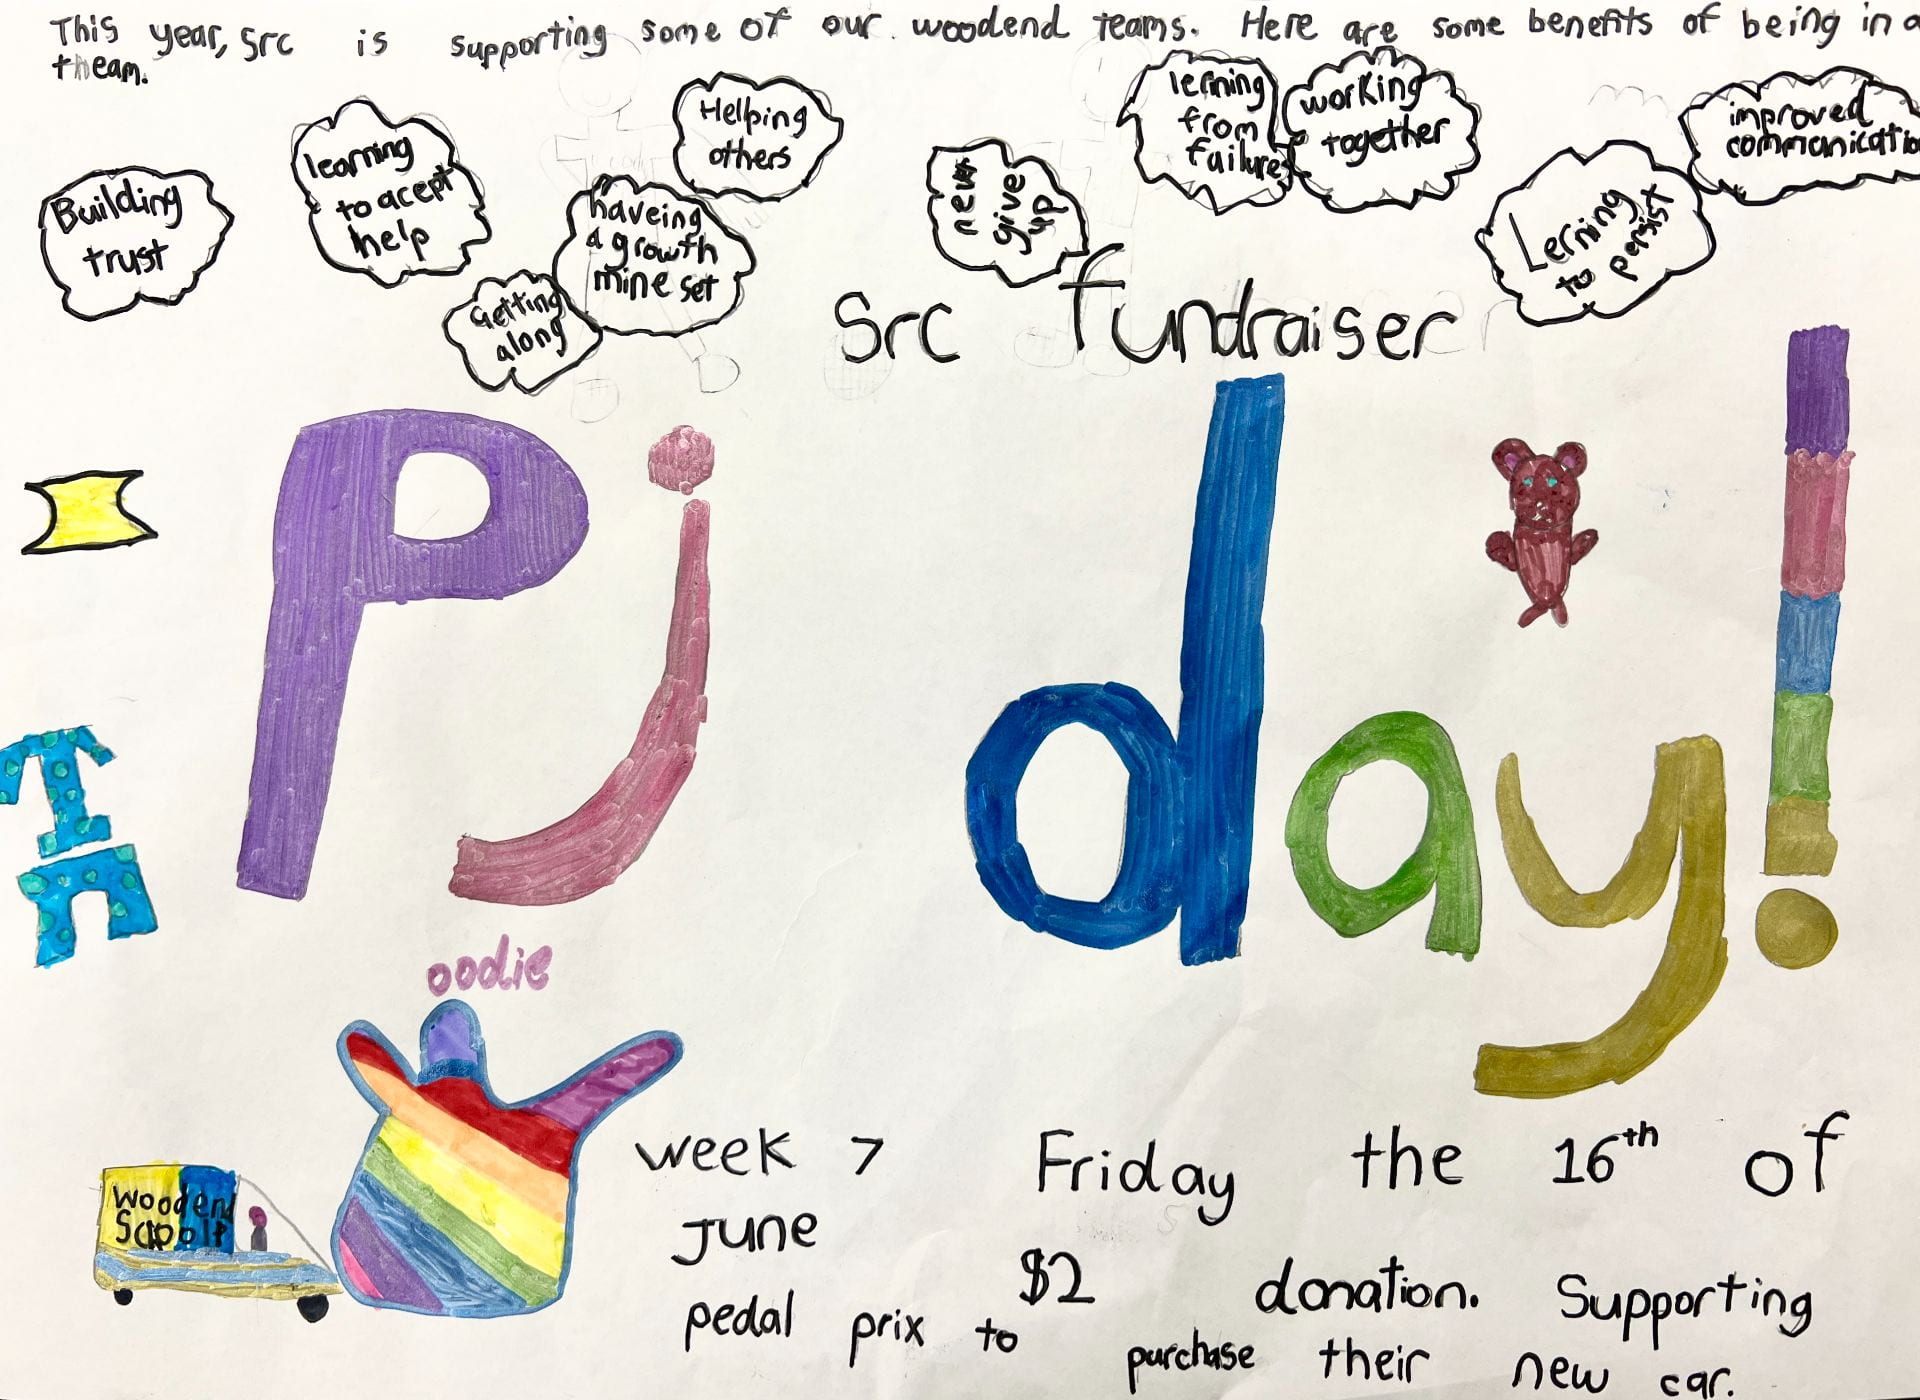 This year, Src is supporting some of our woodend teams. Here are some benefits of being in a
theam.
Building
trust
learning
to acept
help
Getting
along
haveing
a growth
mine set
Helping
others
never
give
up
lerning
from
failures
working
together
Lerning
to persist
improved
communicatio
Src fundraiser
Pj day!
oodie
Woodend
School
week 7 Friday the 16th of
June
$2 donation. Supporting
pedal prix to purchase their new car.